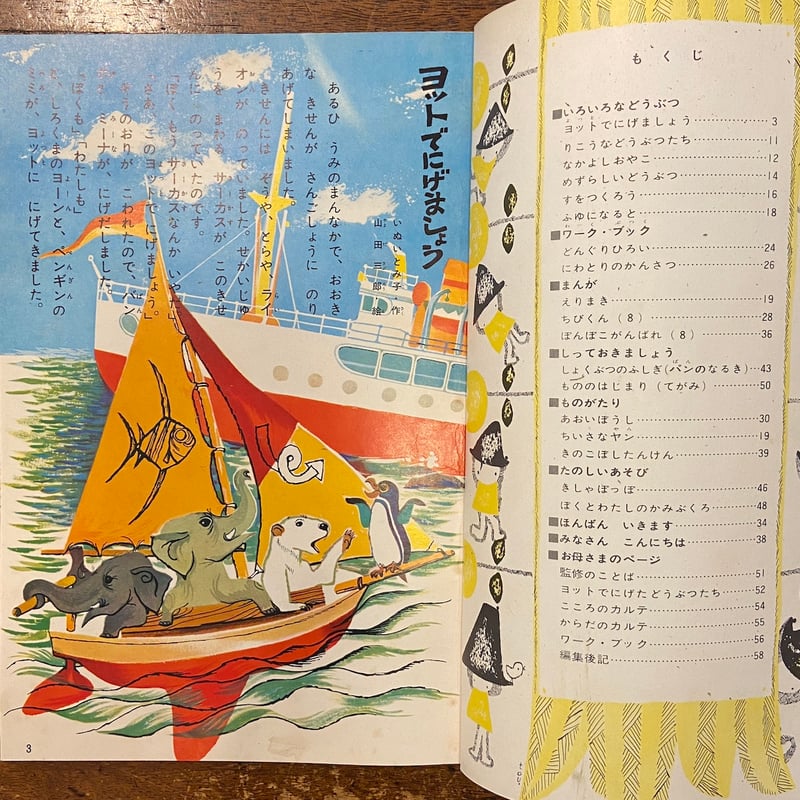 ヨットでにげましょう
いぬいとみ子 作
山田三郎 絵
あるひ うみのまんなかで、おおき
な きせんが さんごしょうに のり
あげてしまいました。
きせんには ぞうや、とらや、ライ
オンが のっていました。せかいじゅ
うを まわる サーカスが このきせ
んに のっていたのです。
「ぼく もう サーカスなんか いやだ」
「さあ、このヨットで にげましょう。」
ぞうのおりが こわれたので、バン
ミーナが、にげだしました。
「ぼくも」「わたしも」
と、しろくまのヨーンと、ペンギンの
ミミが、ヨットに にげてきました。
3
もくじ
■いろいろなどうぶつ
ヨットでにげましょう 3
りこうなどうぶつたち 11
なかよしおやこ 12
めずらしいどうぶつ 14
すをつくろう 16
ふゆになると 18
■ワーク・ブック
どんぐりひろい 24
にわとりのかんさつ 26
■まんが
えりまき 19
ちびくん (8) 28
ぽんぽこがんばれ (8) 36
■しっておきましょう
しょくぶつのふしぎ(パンのなるき) 43
もののはじまり (てがみ) 50
■ものがたり
あおいぼうし 30
ちいさなヤン 19
きのこぼしたんけん 39
■たのしいあそび
きしゃぽっぽ 46
ぼくとわたしのかみぶくろ 48
■ほんばん いきます 34
■みなさん こんにちは 38
■お母さまのページ
監修のことば 51
ヨットでにげたどうぶつたち 52
こころのカルテ 54
からだのカルテ 55
ワーク・ブック 56
編集後記 58